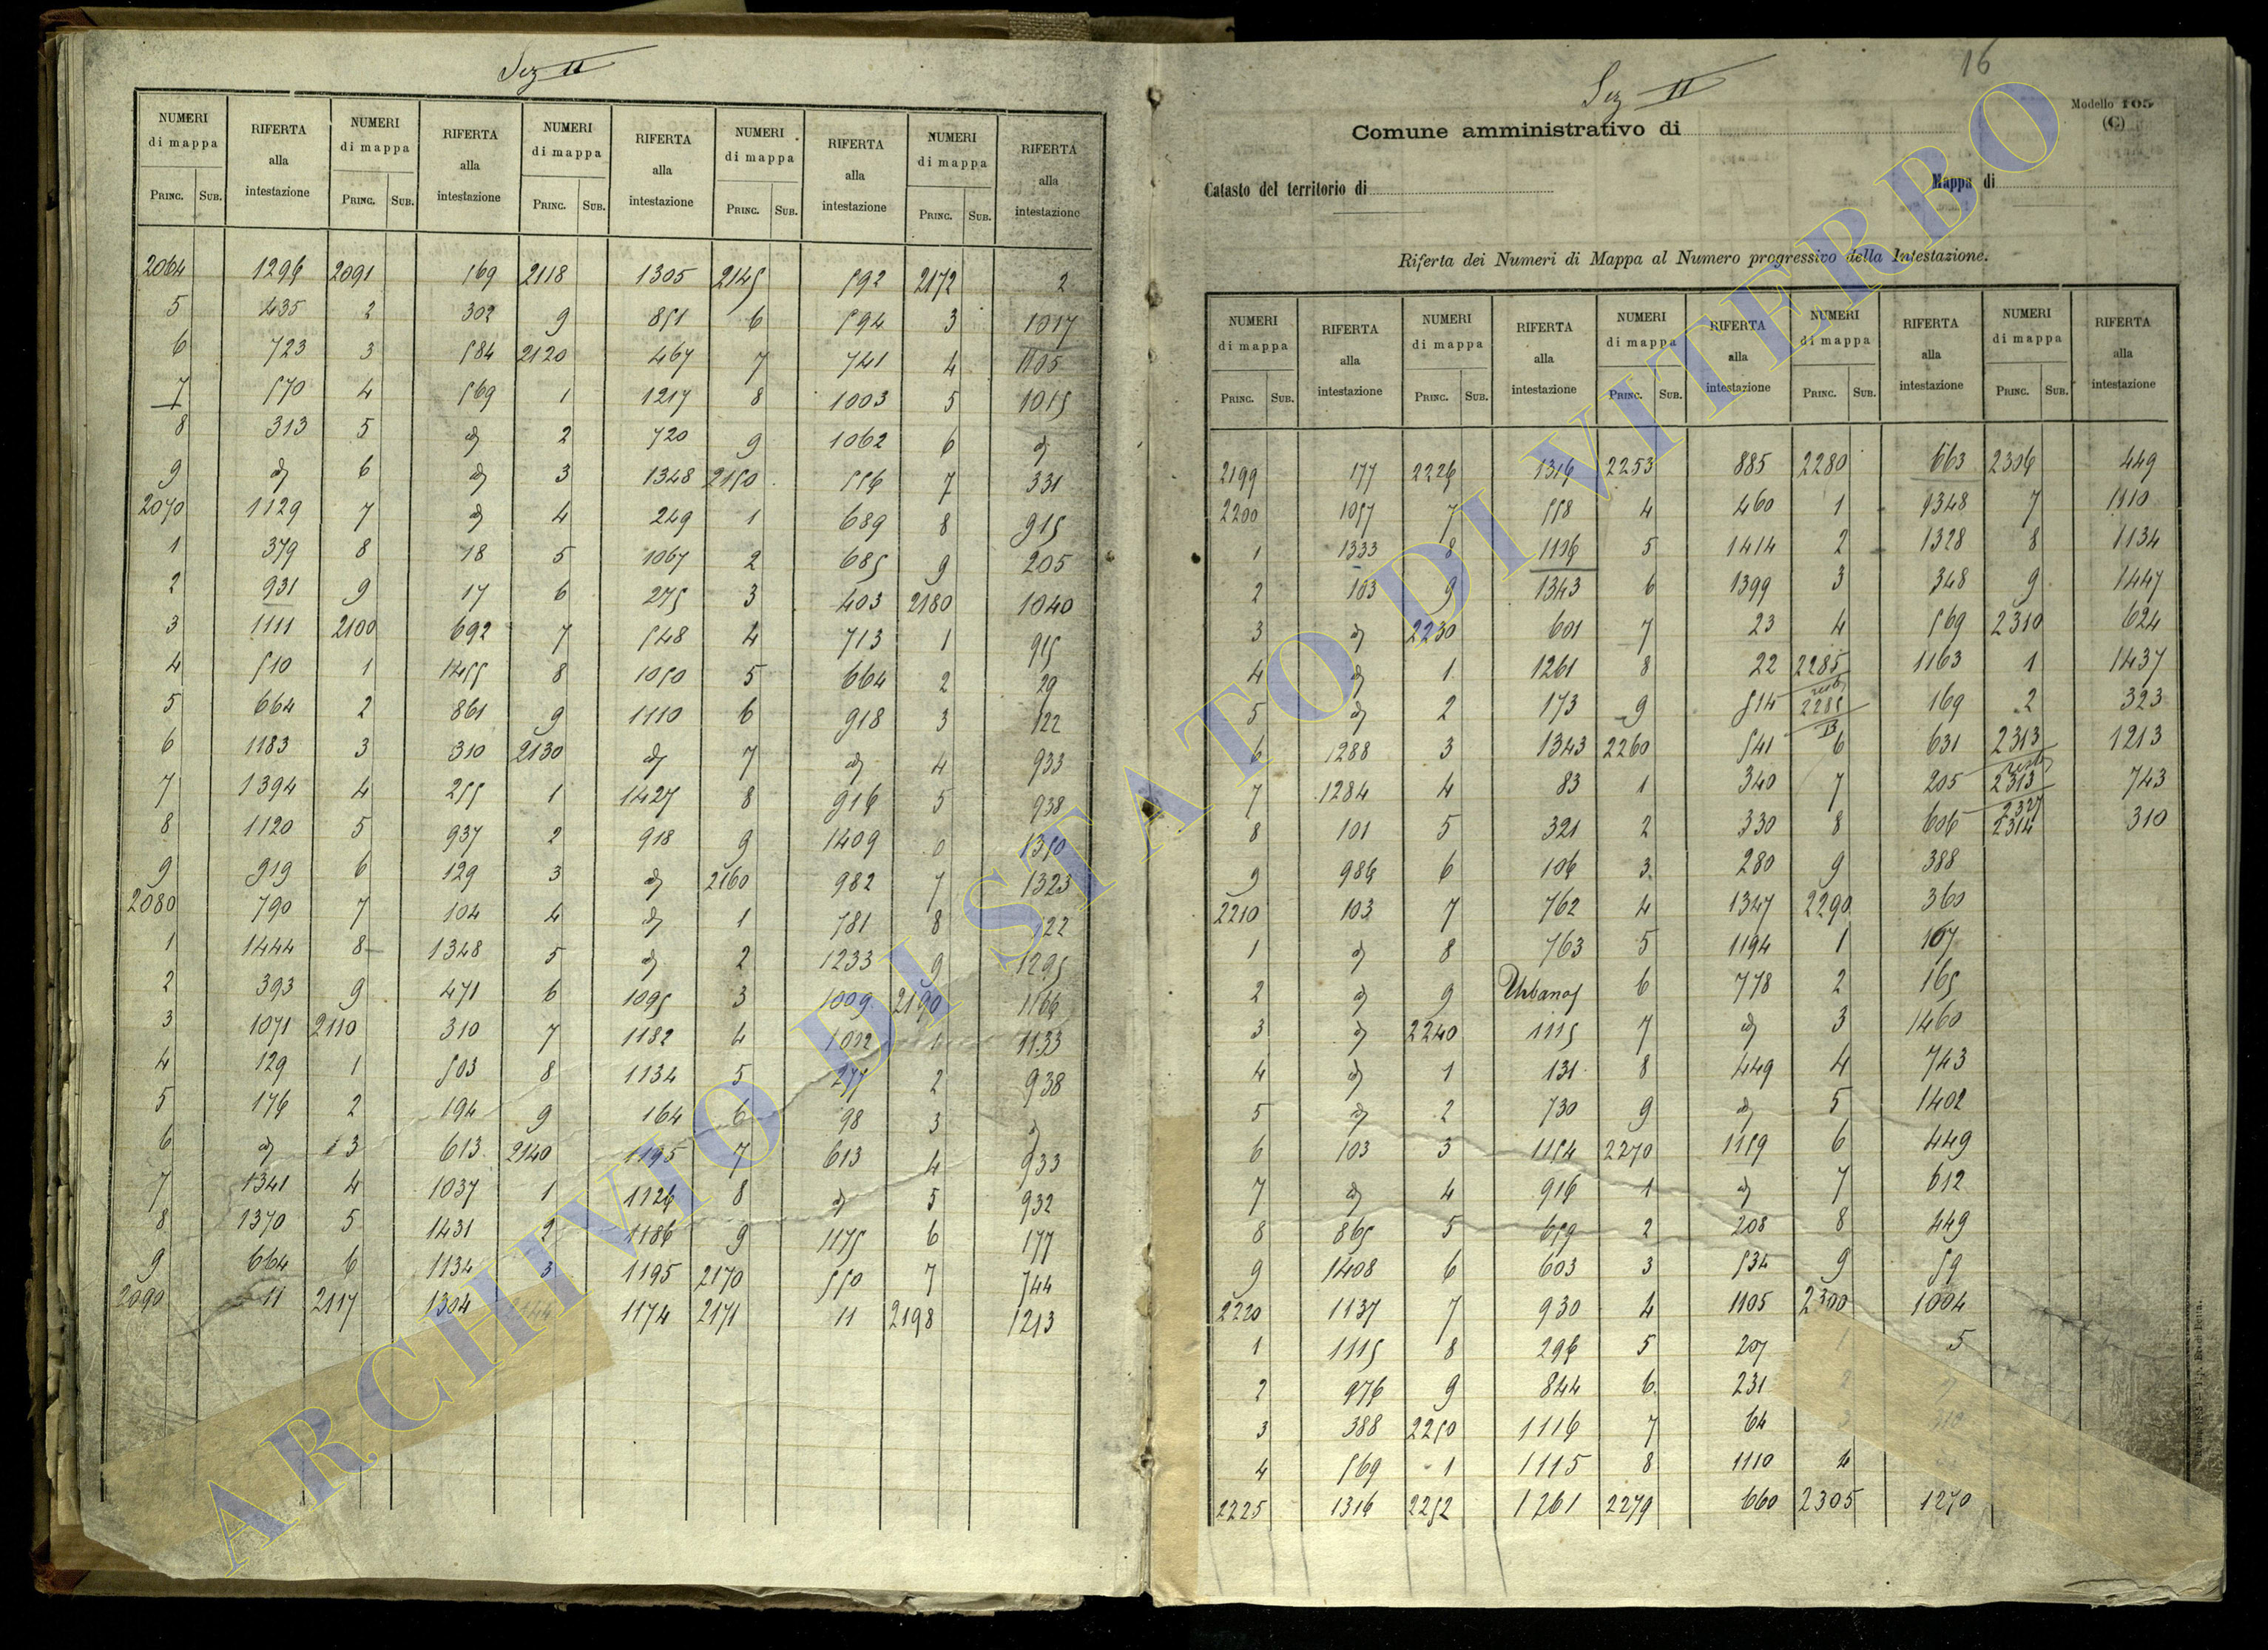 Sez II
NUMERI di mappa RIFERTA alla intestazione NUMERI di mappa RIFERTA alla intestazione NUMERI di mappa RIFERTA alla intestazione NUMERI di mappa RIFERTA alla intestazione NUMERI di mappa RIFERTA alla intestazione
PRINC. SUB. PRINC. SUB. PRINC. SUB. PRINC. SUB. PRINC. SUB.
2064 1296 2091 569 2118 1305 2145 592 2172 2
5 435 2 302 9 851 6 594 3 1017
6 723 3 584 2120 467 7 741 4 1105
7 570 4 569 1 1217 8 1003 5 1015
8 313 5 d 2 720 9 1062 6 d
9 d 6 d 3 1348 2150 556 7 331
2070 1129 7 d 4 249 1 689 8 915
1 379 8 18 5 1067 2 685 9 205
2 931 9 17 6 275 3 403 2180 1040
3 1111 2100 692 7 548 4 713 1 915
4 510 1 1455 8 1050 5 664 2 29
5 664 2 861 9 1110 6 918 3 122
6 1183 3 310 2130 d 7 d 4 933
7 1394 4 255 1 1427 8 916 5 938
8 1120 5 937 2 918 9 1409 0 1350
9 919 6 129 3 d 2160 982 7 1323
2080 790 7 104 4 d 1 781 8 122
1 1444 8 1348 5 d 2 1233 9 1295
2 393 9 471 6 1095 3 1009 2190 1166
3 1071 2110 310 7 1182 4 1092 1 1133
4 129 1 503 8 1134 5 277 2 938
5 176 2 194 9 164 6 98 3 d
6 d 3 613 2140 1195 7 613 4 933
7 1341 4 1037 1 1126 8 d 5 932
8 1370 5 1431 2 1186 9 1175 6 177
9 664 6 1134 3 1195 2170 550 7 744
2090 11 2117 1304 2144 1174 2171 11 2198 1213
16
Sez II
Modello 105
(C)
Comune amministrativo di
Catasto del territorio di Mappa di
Riferta dei Numeri di Mappa al Numero progressivo della Intestazione.
NUMERI di mappa RIFERTA alla intestazione NUMERI di mappa RIFERTA alla intestazione NUMERI di mappa RIFERTA alla intestazione NUMERI di mappa RIFERTA alla intestazione NUMERI di mappa RIFERTA alla intestazione
PRINC. SUB. PRINC. SUB. PRINC. SUB. PRINC. SUB. PRINC. SUB.
2199 177 2226 1316 2253 885 2280 663 2306 449
2200 1057 7 558 4 460 1 1348 7 1110
1 1333 8 1196 5 1414 2 1328 8 1134
2 103 9 1343 6 1399 3 348 9 1447
3 d 2230 601 7 23 4 569 2310 624
4 d 1 1261 8 22 2285 rest 1163 1 1437
5 d 2 173 9 514 2285 B 169 2 323
6 1288 3 1343 2260 541 6 631 2313 rest 1213
7 1284 4 83 1 340 7 205 2313 2327 743
8 101 5 321 2 330 8 606 2314 310
9 986 6 106 3 280 9 388
2210 103 7 762 4 1347 2290 360
1 d 8 763 5 1194 1 107
2 d 9 Urbano 6 778 2 165
3 d 2240 1115 7 d 3 1460
4 d 1 131 8 449 4 743
5 d 2 730 9 d 5 1402
6 103 3 1154 2270 1159 6 449
7 d 4 916 1 d 7 612
8 865 5 659 2 208 8 449
9 1408 6 603 3 534 9 59
2220 1137 7 930 4 1105 2300 1004
1 1115 8 296 5 207 1 5
2 976 9 844 6 231
3 388 2250 1116 7 64
4 569 1 1115 8 1110 4
2225 1316 2252 1261 2279 660 2305 1270
ARCHIVIO DI STATO DI VITERBO